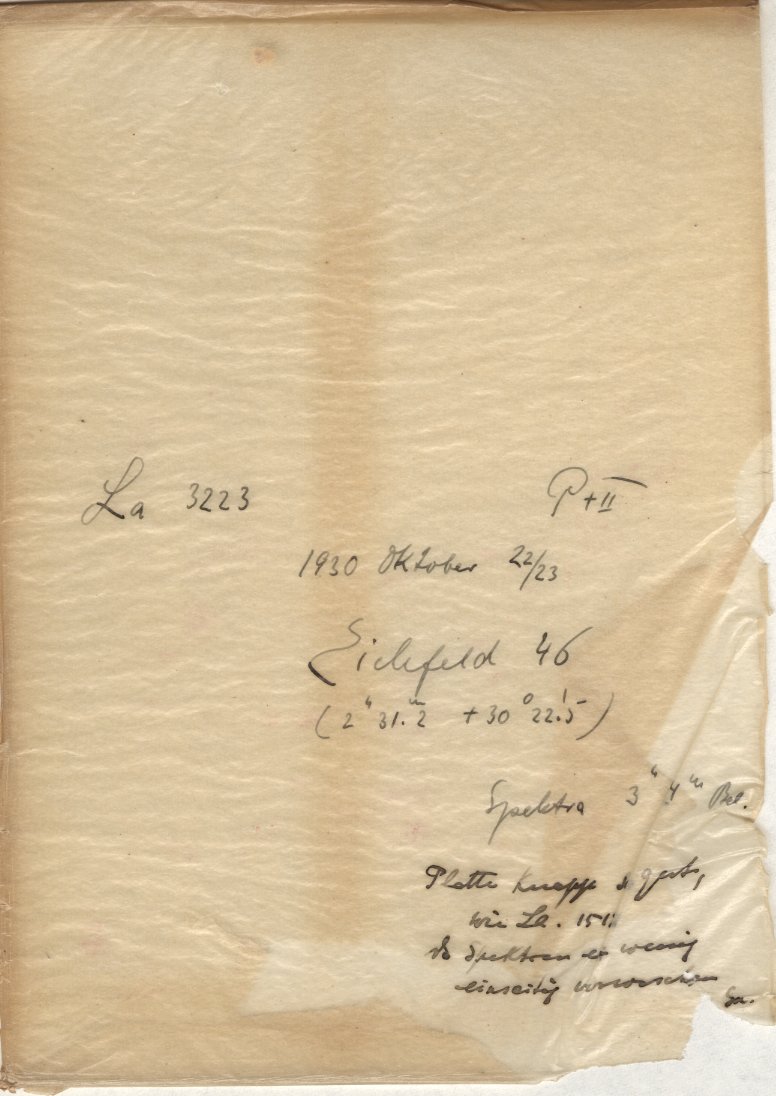 La 3223
P + II
1930 Oktober 22/23
Eichfeld 46
(2ʰ 31.ᵐ2 +30° 22.'5)
Spektra 3ʰ 4ᵐ Bel.
Platte knapp gut,
wie La.
Spektren wenig
einseitig verwaschen